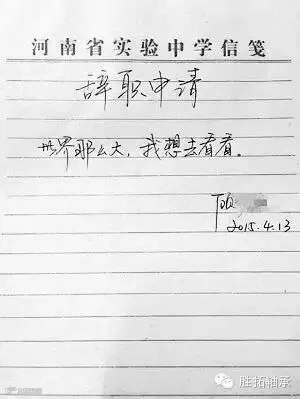 河南省实验中学信笺
辞职申请
世界那么大,我想去看看。
顾
2015.4.13
胜拓轴承